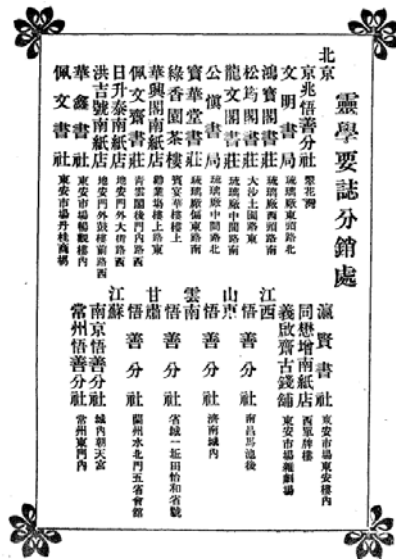 靈學要誌分銷處
北京
京兆悟善分社 翠花灣
文明書局 琉璃廠東頭路北
鴻寶閣書莊 琉璃廠西頭路南
松筠閣書莊 大沙土園路東
龍文閣書莊 琉璃廠中間路南
公慎書局 琉璃廠中間路北
寶華堂書莊 琉璃廠偏東路南
綠香園茶樓 賓宴華樓樓上
華興閣南紙店 勸業塲樓上路東
佩文齋書莊 青雲閣後門內路西
日升泰南紙店 地安門外大街路西
洪吉號南紙店 地安門外鼓樓前路西
華鑫書社 東安市塲暢觀樓內
佩文書社 東安市塲丹桂商塲
瀛賢書社 東安市塲東安樓內
同懋增南紙店 西單牌樓
義啟齋古錢舖 東安市塲雜劇塲
江西
悟善分社 南昌馬池後
山東
悟善分社 濟南城內
雲南
悟善分社 省城一坵田怡和省號
甘肅
悟善分社 蘭州水北門五省會館
江蘇
南京悟善分社 城內朝天宮
常州悟善分社 常州東門內